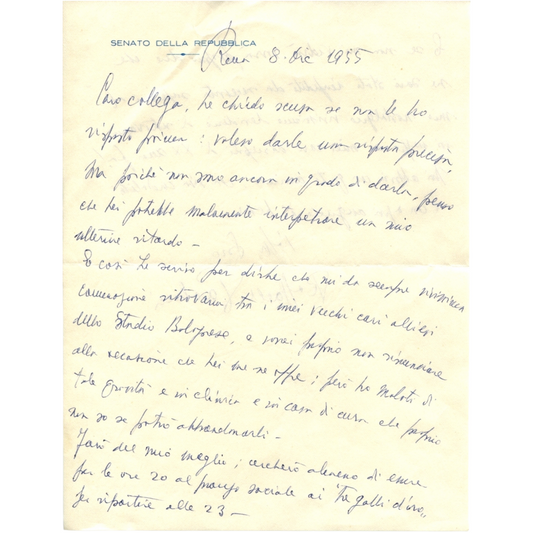 SENATO DELLA REPUBBLICA
Roma 8. Dic 1955
Caro collega, Le chiedo scusa se non Le ho
risposto prima: volevo darle una risposta precisa,
ma poiché non sono ancora in grado di darla, penso
che Lei potrebbe malamente interpretare un mio
ulteriore ritardo –
E così Le scrivo per dirLe che mi dà sempre vivissima
commozione ritrovarmi tra i miei vecchi cari allievi
dello Studio Bolognese, e vorrei proprio non rinunciare
alla occasione che Lei me ne offre; però ho malati di
tale gravità e in clinica e in casa di cura che proprio
non so se potrò abbandonarli –
Farò del mio meglio; cercherò almeno di essere
per le ore 20 al pranzo sociale ai "Tre galli d'oro"
per ripartire alle 23 –